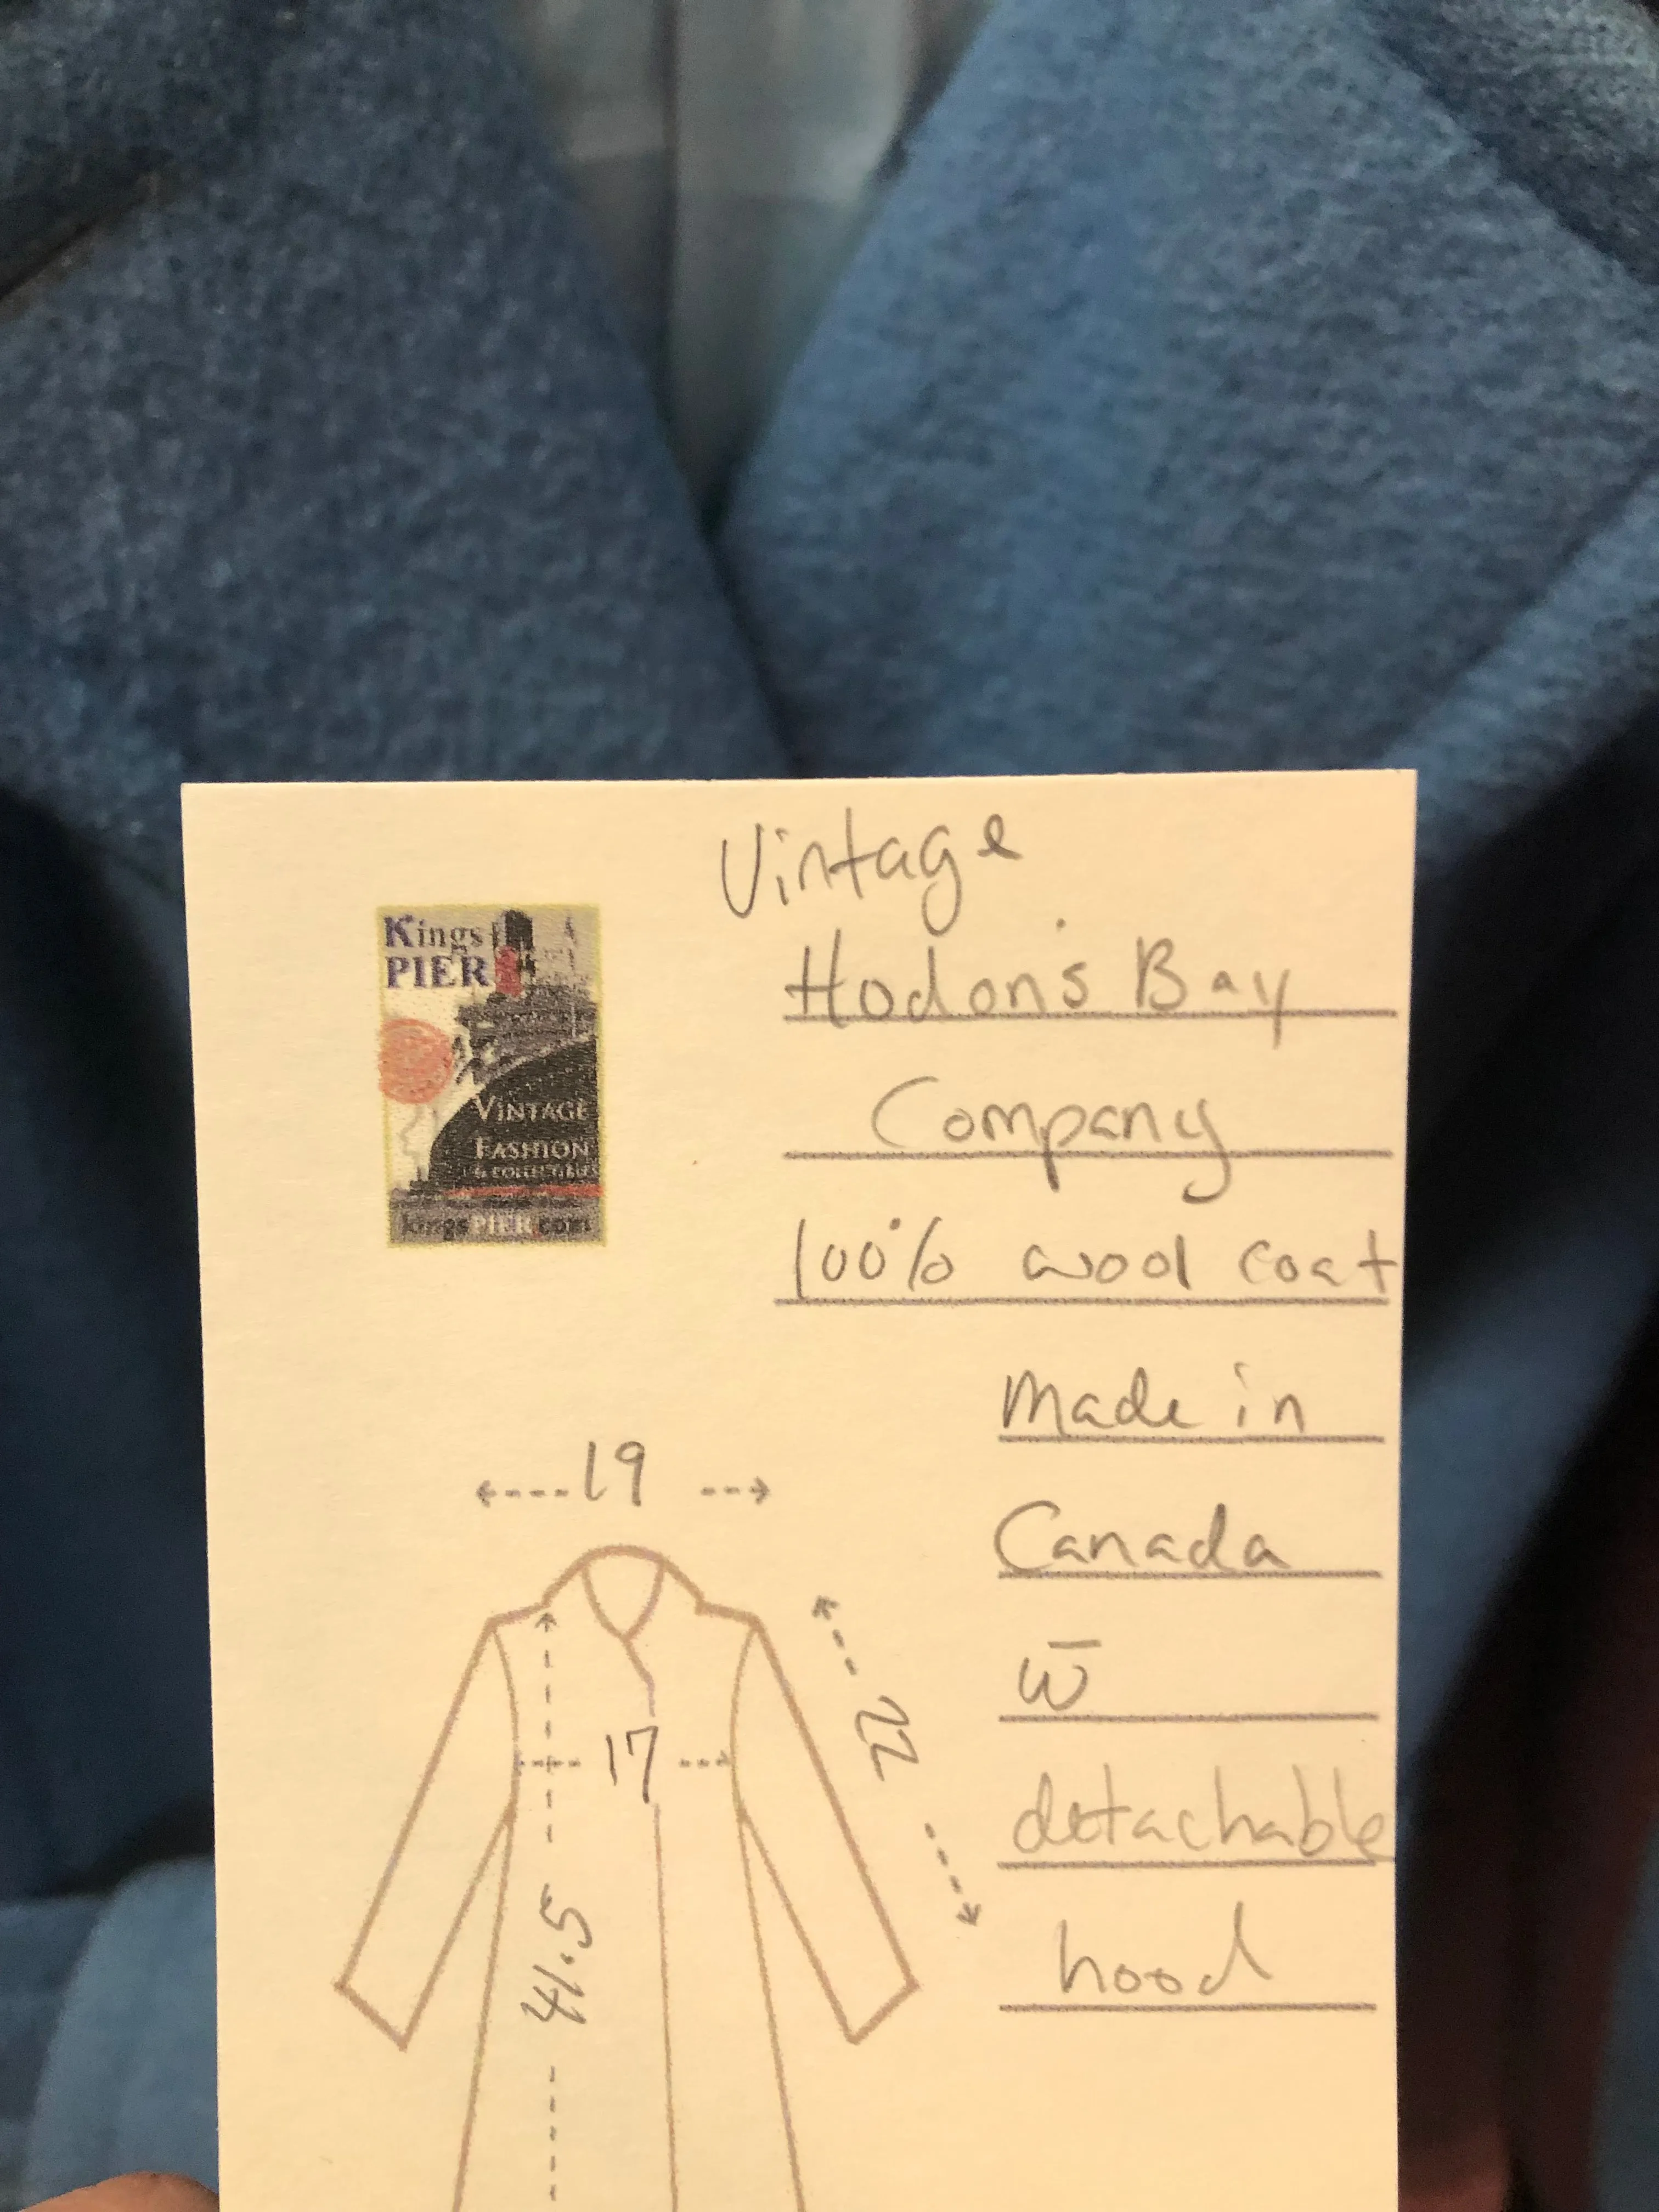 Vintage
Hodon's Bay
Company
100% wool coat
Made in
Canada
w̄
detachable
hood
Kings
PIER
VINTAGE
FASHION
& COLLECTIBLES
kingsPIER.com
19
17
22
41.5